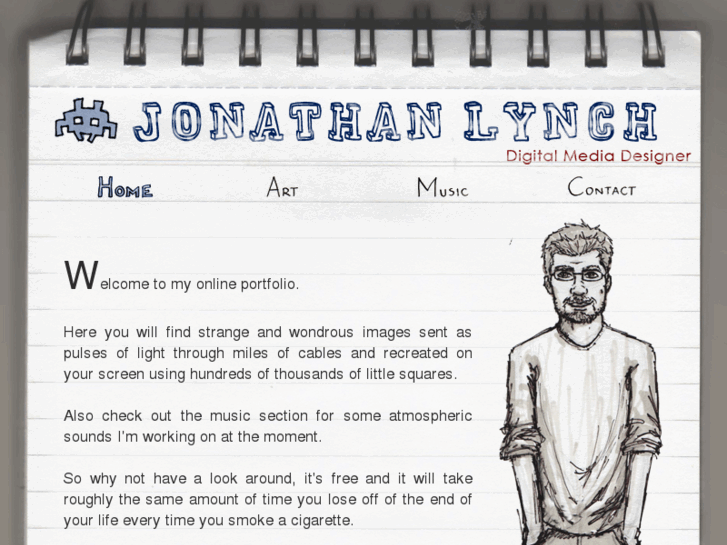 JONATHAN LYNCH
Digital Media Designer
Home Art Music Contact
Welcome to my online portfolio.
Here you will find strange and wondrous images sent as
pulses of light through miles of cables and recreated on
your screen using hundreds of thousands of little squares.
Also check out the music section for some atmospheric
sounds I'm working on at the moment.
So why not have a look around, it's free and it will take
roughly the same amount of time you lose off of the end of
your life every time you smoke a cigarette.